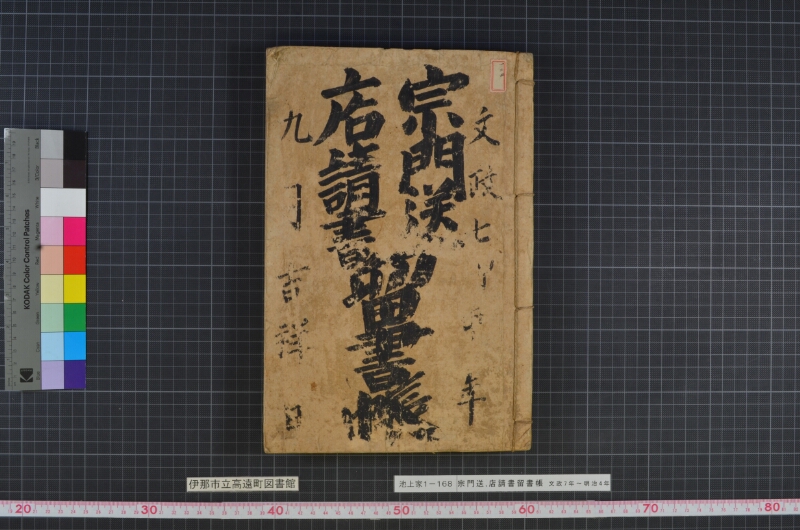 文政七甲申年
宗門送
店請書
留書帳
九月吉祥日
伊那市立高遠町図書館
池上家1-168 宗門送、店請書留書帳 文政7年-明治4年
KODAK Color Control Patches
Kodak
20 30 40 50 60 70 80